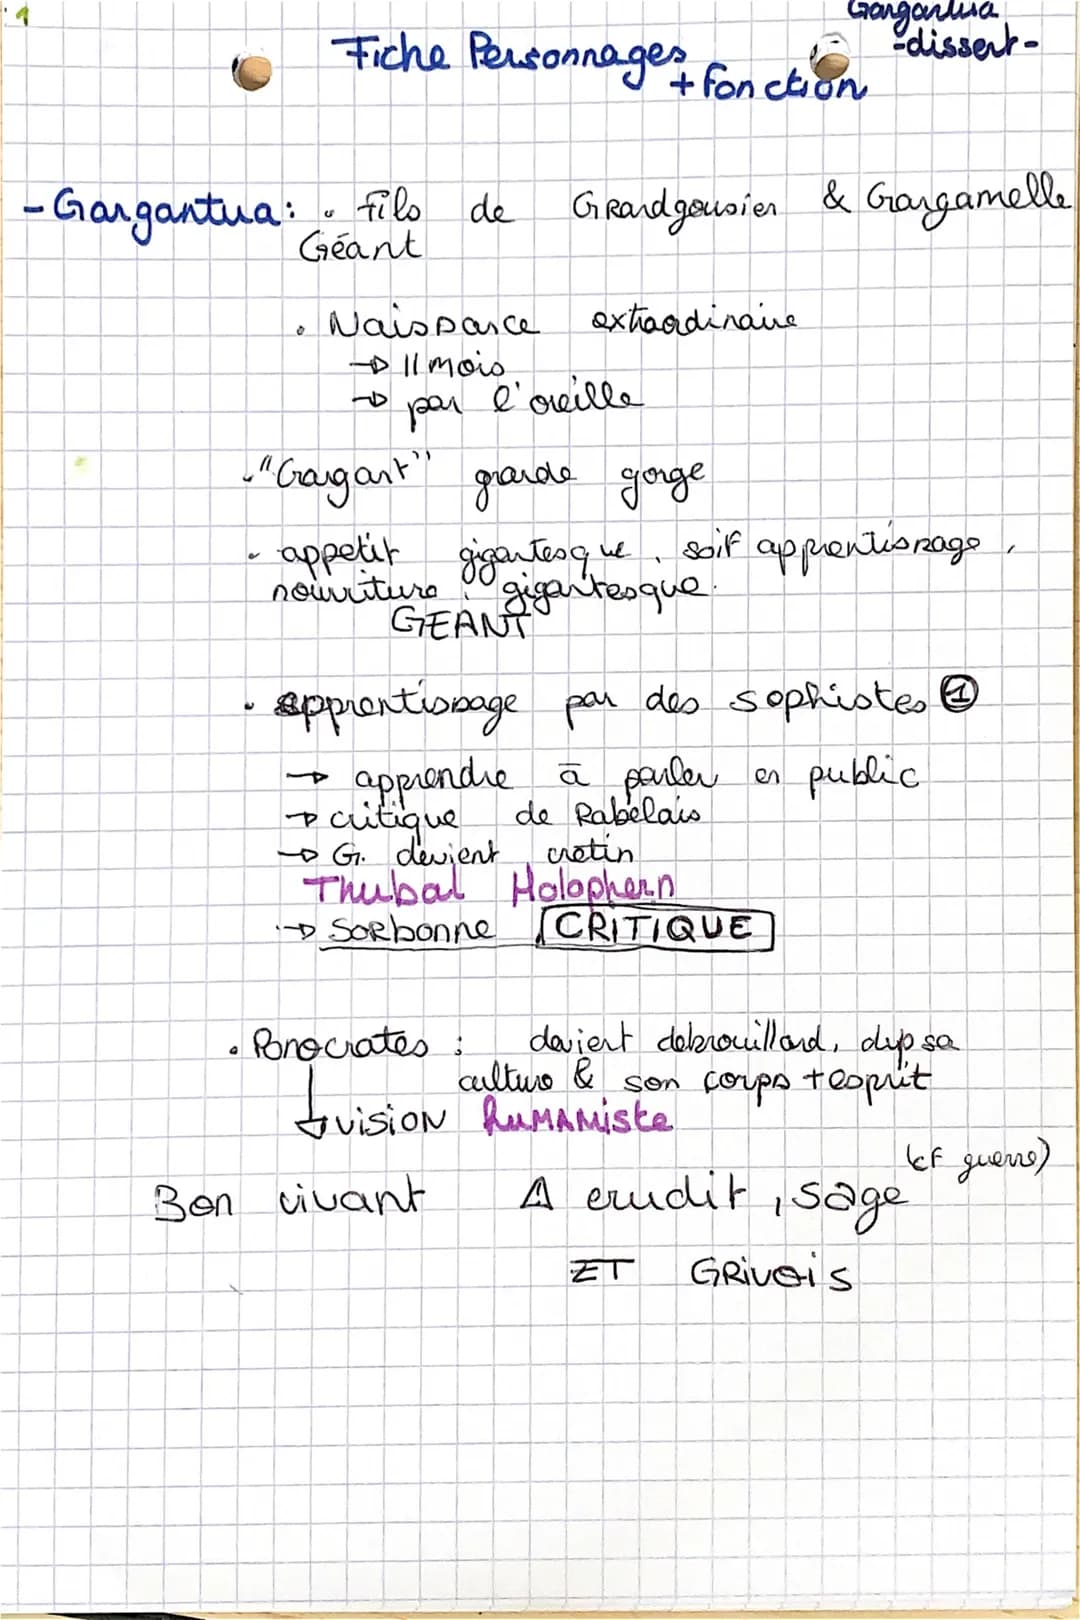 1
Gargantua
-dissert-
Fiche Personnages
+ fonction
- Gargantua : • fils de Grandgousier & Gargamelle
Géant
• Naissance extraordinaire
→ 11 mois
→ par l'oreille
• "Gargant" grande gorge
• appetit gigantesque, soif apprentissage,
nourriture gigantesque.
GEANT
• apprentissage par des sophistes ①
→ apprendre à parler en public
→ critique de Rabelais
→ G. devient cretin
Thubal Holophern
→ Sorbonne CRITIQUE
• Ponocrates : devient debrouillard, dvp sa
culture & son corps + esprit
vision humaniste
(cf guerre)
Bon vivant erudit, sage
ET GRIVOIS